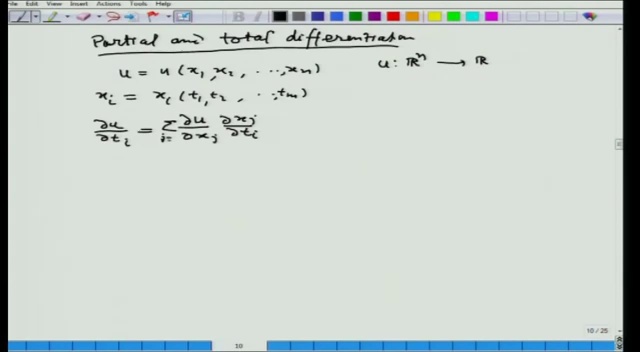 File Edit View Insert Actions Tools Help
Partial and total differentiation
u = u (x₁, x₂, ..., xₙ) u: ℝⁿ → ℝ
xᵢ = xᵢ (t₁, t₂, ..., tₘ)
∂u/∂tᵢ = Σ_{i=} ∂u/∂xⱼ ∂xⱼ/∂tᵢ
10 / 25
10